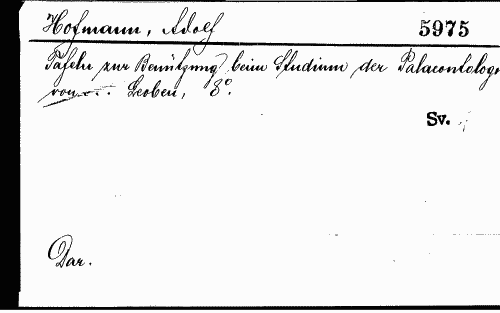 Hofmann, Adolf 5975
Tafeln zur Benützung beim Studium der Palaeontolog
von... Leoben, 8°.
Sv.
Dar.